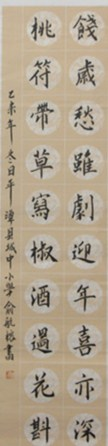 餞歲愁雖劇迎年喜亦深
桃符帶草寫椒酒過花斟
乙未年冬日平潭縣城中小學俞航榕書